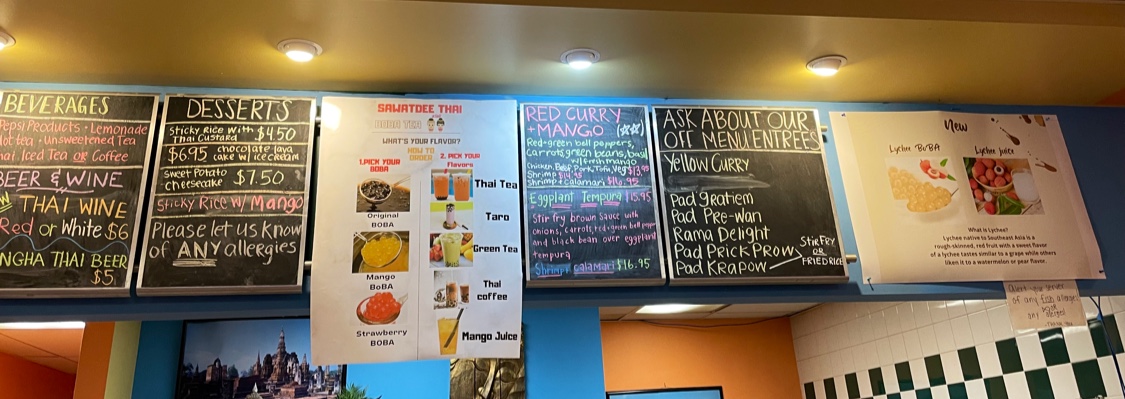 BEVERAGES
Pepsi Products • Lemonade
Hot tea • unsweetened Tea
Thai Iced Tea or Coffee
BEER & WINE
THAI WINE
Red or White $6
NGHA THAI BEER
$5
DESSERTS
Sticky Rice with $4.50
Thai Custard
$6.95 chocolate lava
cake w/ icecream
Sweet Potato
cheesecake $7.50
Sticky Rice w/ Mango
Please let us know
of ANY allergies
SAWATDEE THAI
BOBA TEA
WHAT'S YOUR FLAVOR?
HOW TO
ORDER
1.PICK YOUR
BOBA
2. PICK YOUR
Flavors
Original
BOBA
Mango
BoBA
Strawberry
BOBA
Thai Tea
Taro
Green Tea
Thai
coffee
Mango Juice
RED CURRY
+ MANGO
Red+green bell peppers,
Carrots, green beans, basil
w/ fresh mango
Chicken, Beef, Pork, Tofu, Veg $13.95
Shrimp $14.95
Shrimp + calamari $16.95
Eggplant Tempura $15.95
Stir fry brown sauce with
onions, carrots, red + green bell pepper
and black bean over eggplant
tempura
Shrimp + calamari $16.95
ASK ABOUT OUR
OFF MENU ENTREES
Yellow CURRY
Pad gratiem
Pad Pre-wan
Rama Delight
Pad Prick Prow
Pad Krapow
STIR FRY
OR
FRIED RICE
New
Lychee BoBA
Lychee Juice
What is Lychee?
Lychee native to Southeast Asia is a
rough-skinned, red fruit with a sweet flavor
of a lychee tastes similar to a grape while others
liken it to a watermelon or pear flavor.
Alert your server
of any fish allergies
any